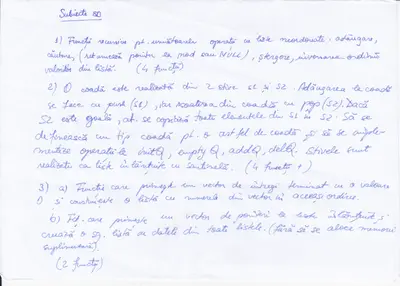 Subiecte SD
1) Funcții recursive pt. următoarele operații cu liste neordonate: adăugare,
căutare, (returnează pointer la nod sau NULL), ștergere, inversarea ordinii
valorilor din listă. (4 funcții)
2) O coadă este realizată din 2 stive S1 și S2. Adăugarea la coadă
se face cu push(S1), iar scoaterea din coadă cu pop(S2). Dacă
S2 este goală, at. se copiază toate elementele din S1 în S2. Să se
definească un tip coadă pt. o astfel de coadă, și să se imple-
menteze operațiile initQ, emptyQ, addQ, delQ. Stivele sunt
realizate ca liste înlănțuite cu santinelă. (4 funcții +)
3) a) Funcție care primește un vector de întregi terminat cu o valoare
0 și construiește o listă cu numerele din vector în aceeași ordine.
b) Fcț. care primește un vector de pointeri la liste înlănțuite și
crează o sg. listă cu datele din toate listele. (fără să se aloce memorie
suplimentară).
(2 funcții)